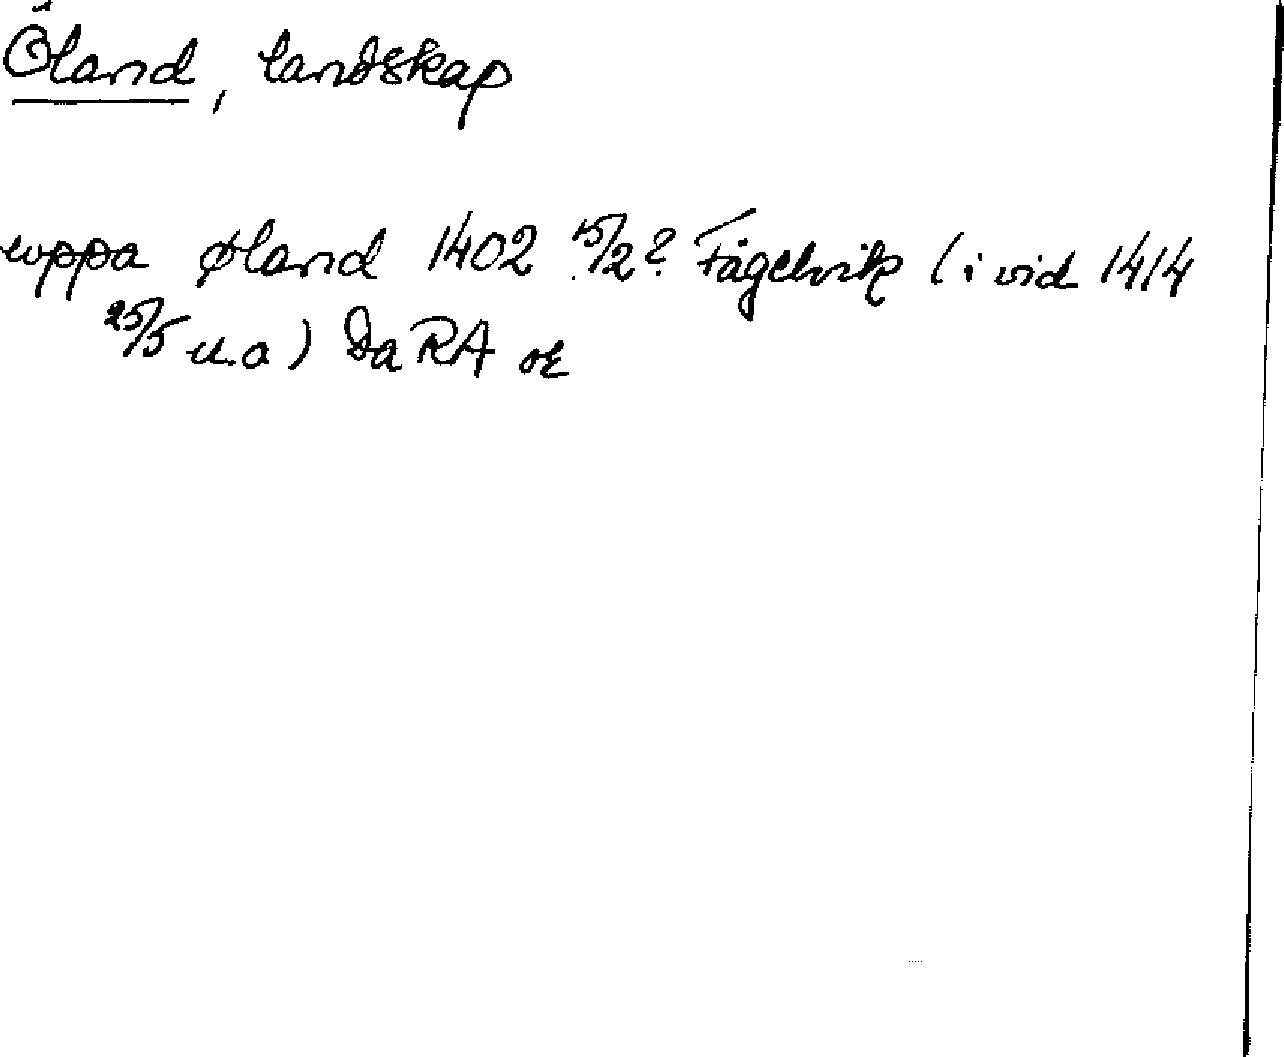 Öland, landskap
uppa Øland 1402 15/2? Fågelvik (i vid 1414
25/5 u.a) Da RA or